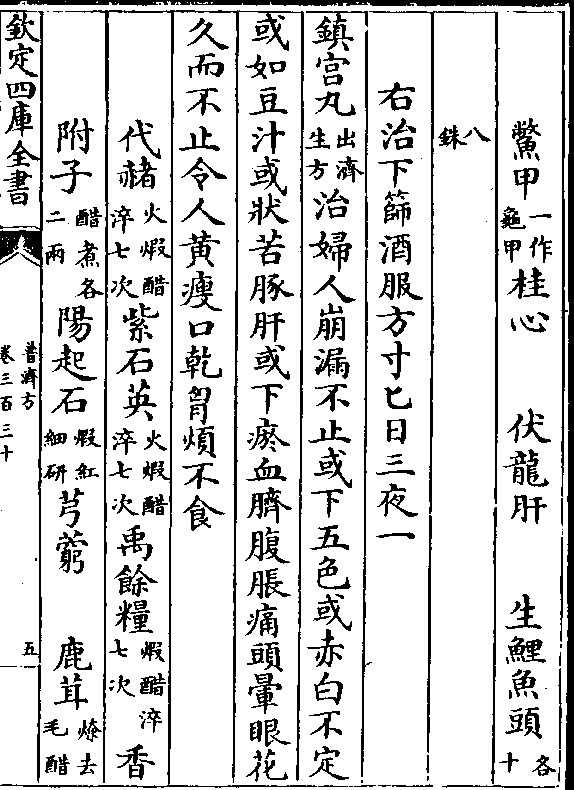 鱉甲一作龜甲桂心 伏龍肝 生鯉魚頭各十
八銖
右治下篩酒服方寸匕日三夜一
鎮宫丸出濟生方治婦人崩漏不止或下五色或赤白不定
或如豆汁或狀苦豚肝或下瘀血臍腹脹痛頭暈眼花
久而不止令人黄瘦口乾胷煩不食
代赭火煆醋淬七次紫石英火煆醋淬七次禹餘糧煆醋淬七次香
附子醋煮各二兩陽起石煆紅細研芎藭 鹿茸燎去毛醋
欽定四庫全書
普濟方
卷三百三十
五